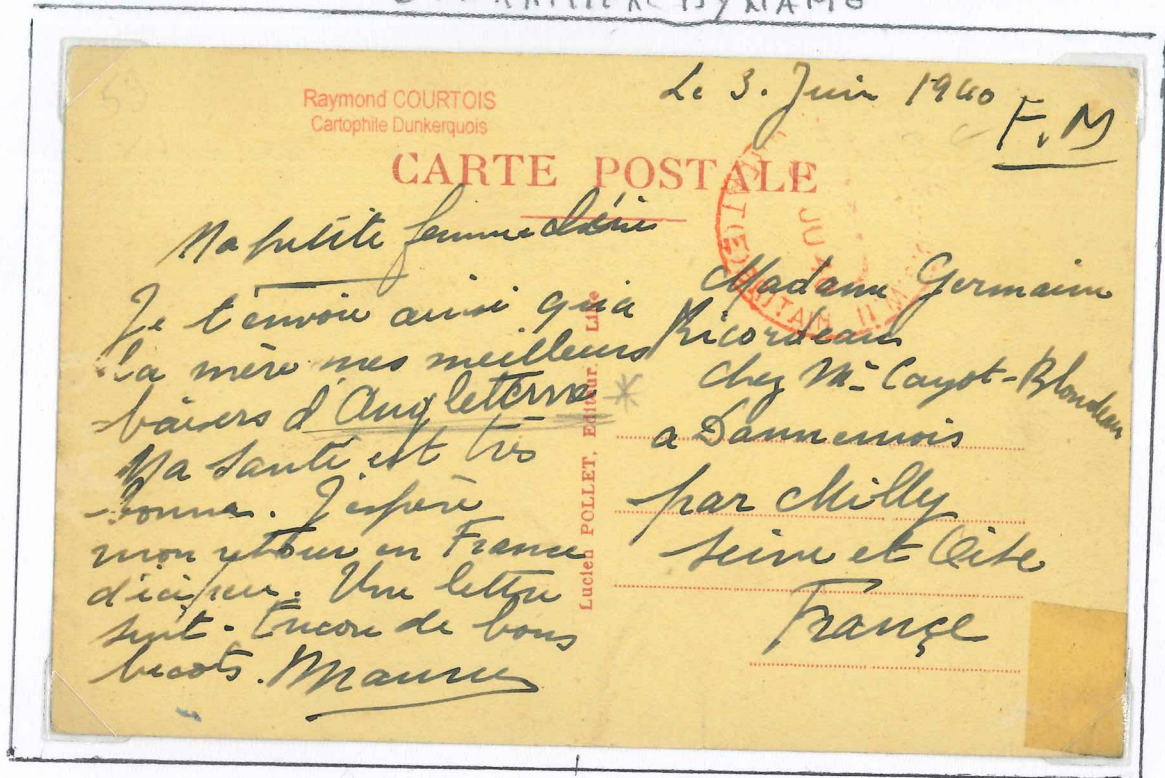 DYNAMO
Raymond COURTOIS
Cartophile Dunkerquois
Le 3. Juin 1940
F.M
CARTE POSTALE
Ma petite femme chérie
Je t'envoie ainsi qu'a
la mère mes meilleurs
baisers d'Angleterre *
Ma santé est très
bonne. J'espère
mon retour en France
d'ici peu. Une lettre
suit. Encore de bons
becots. Maurice
Lucien POLLET, Editeur, Lille
Madame Germaine
Ricordeau
chez Mr Cayot-Blondeau
a Dannemois
par Milly
Seine et Oise
France